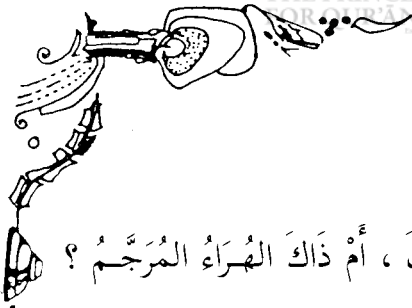 FOR QUR'ĀN
، أَمْ ذَاكَ الهُرَاءُ المُرَجَّمُ ؟